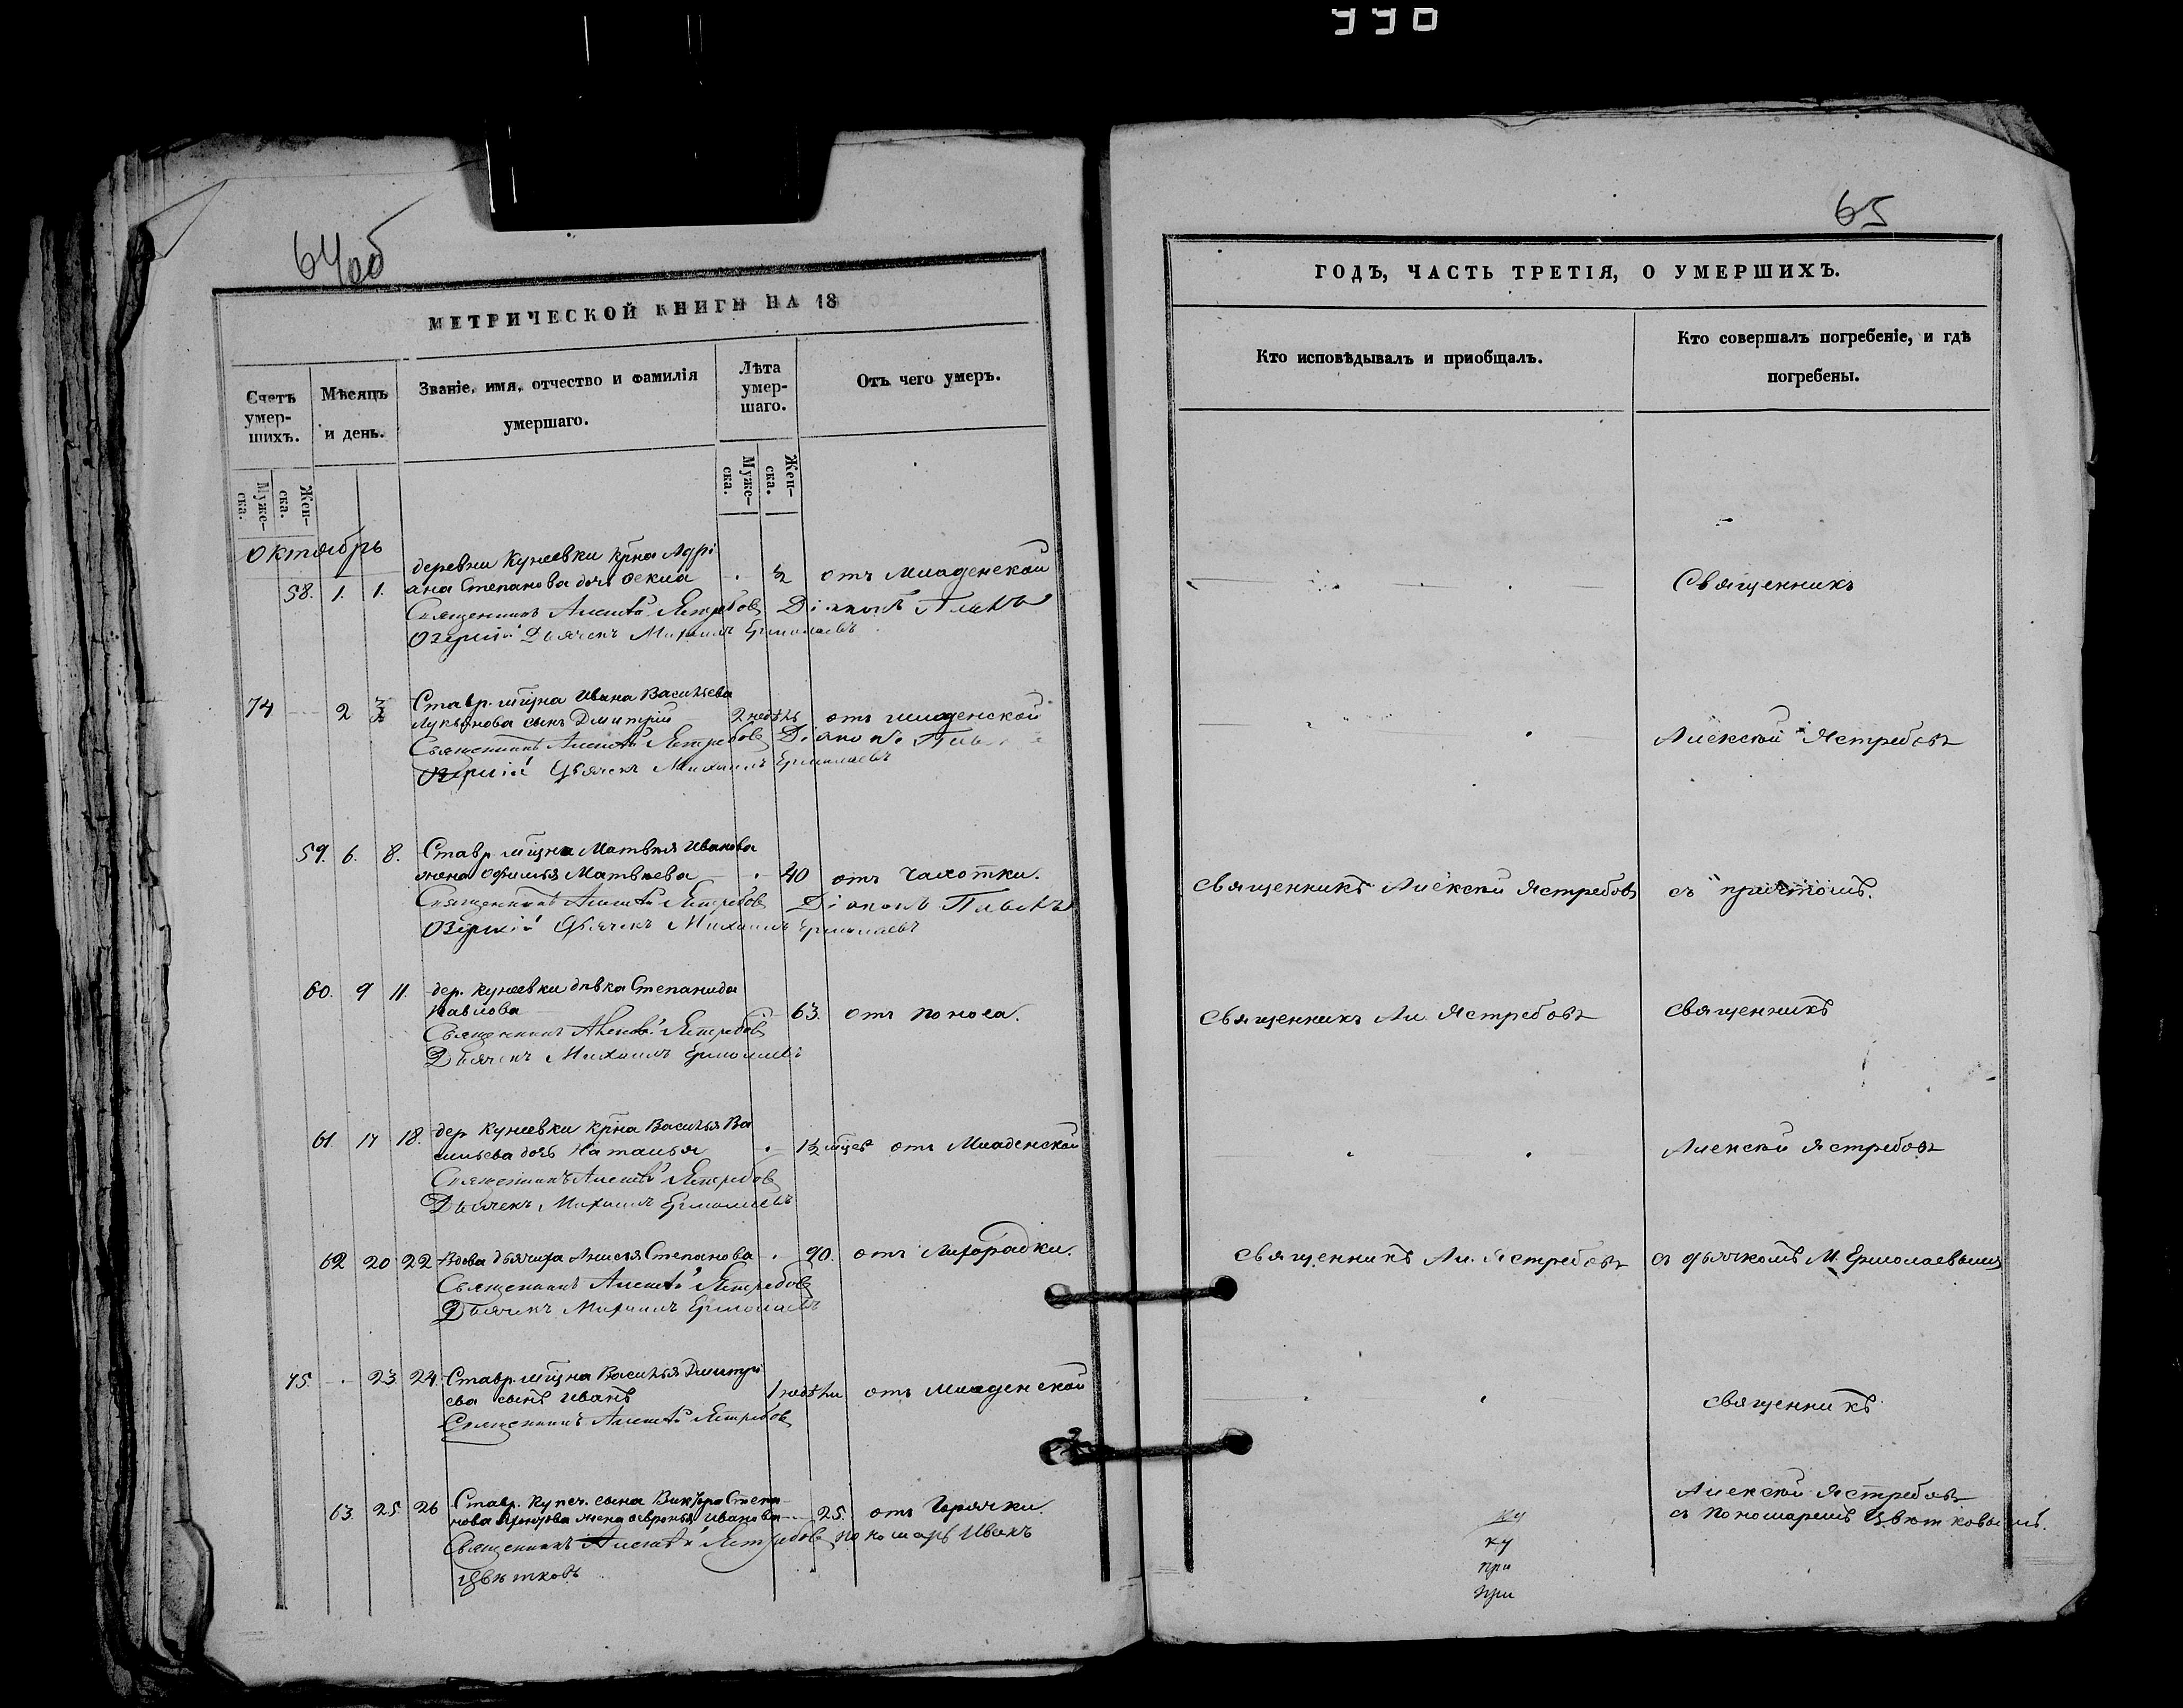 990
64об
МЕТРИЧЕСКОЙ КНИГИ НА 18
Счетъ умер-шихъ.
Мѣсяцъ и день.
Званіе, имя, отчество и фамилія умершаго.
Лѣта умер-шаго.
Отъ чего умеръ.
Муже-ска.
Жен-ска.
Муже-ска.
Жен-ска.
Октябрь
деревни Кунеевки крна Адрі
58. 1. 1. ана Степанова дочь Фекла ½ отъ Младенской
Священникъ Алексѣй Ястребовъ Діаконъ Павелъ
Озерскій Дьячекъ Михаилъ Ермолаевъ
74 2 3 Ставр. мщна Ивана Васильева
Лукьянова сынъ Дмитрій 2 недѣль отъ младенской
Священникъ Алексѣй Ястребовъ Діаконъ Павелъ
Озерскій Дьячекъ Михаилъ Ермолаевъ
59. 6. 8. Ставр. мщна Матвѣя Иванова
жена Офимья Матвѣева 40 отъ Чахотки.
Священникъ Алексѣй Ястребовъ Діаконъ Павелъ
Озерскій Дьячекъ Михаилъ Ермолаевъ
60. 9 11. дер. Кунеевки дѣвка Степанида
Павлова 63. отъ поноса.
Священникъ Алексѣй Ястребовъ
Дьячекъ Михаилъ Ермолаевъ
61. 17 18. дер. Кунеевки крна Василья Ва
сильева дочь Наталья отъ Младенской
Священникъ Алексѣй Ястребовъ
Дьячекъ Михаилъ Ермолаевъ
62 20 22 Вдова дьячиха Анисья Степанова 90. отъ Лихорадки.
Священникъ Алексѣй Ястребовъ
Дьячекъ Михаилъ Ермолаевъ
75. 23 24. Ставр. мщна Василья Дмитрі
ева сынъ Иванъ 1 недѣли отъ Младенской
Священникъ Алексѣй Ястребовъ
63. 25. 26 Ставр. купеч. сына Виктора Степа
нова жена Февронья Иванова 25. отъ Горячки.
Священникъ Алексѣй Ястребовъ пономарь Иванъ
Цвѣтковъ
65
ГОДЪ, ЧАСТЬ ТРЕТІЯ, О УМЕРШИХЪ.
Кто исповѣдывалъ и приобщалъ.
Кто совершалъ погребеніе, и гдѣ погребены.
Священникъ
Алексѣй Ястребовъ
Священникъ Алексѣй Ястребовъ съ причтомъ.
Священникъ Ал. Ястребовъ священникъ
Алексѣй Ястребовъ
Священникъ Ал. Ястребовъ съ дьячкомъ М. Ермолаевымъ
священникъ
Алексѣй Ястребовъ
съ пономаремъ Цвѣтковымъ.
ку
ку
при
при